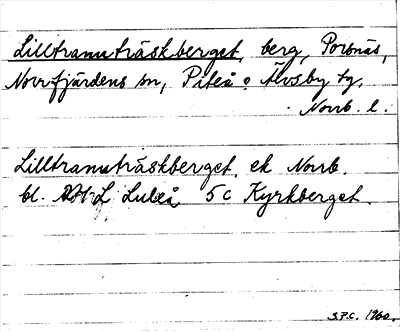 Lilltranuträskberget, berg, Porsnäs,
Norrfjärdens sn, Piteå o. Älvsby tg,
Norrb. l.
Lilltranuträskberget, ek Norrb.
bl. Luleå 5c Kyrkberget.
S.F.C. 1960.